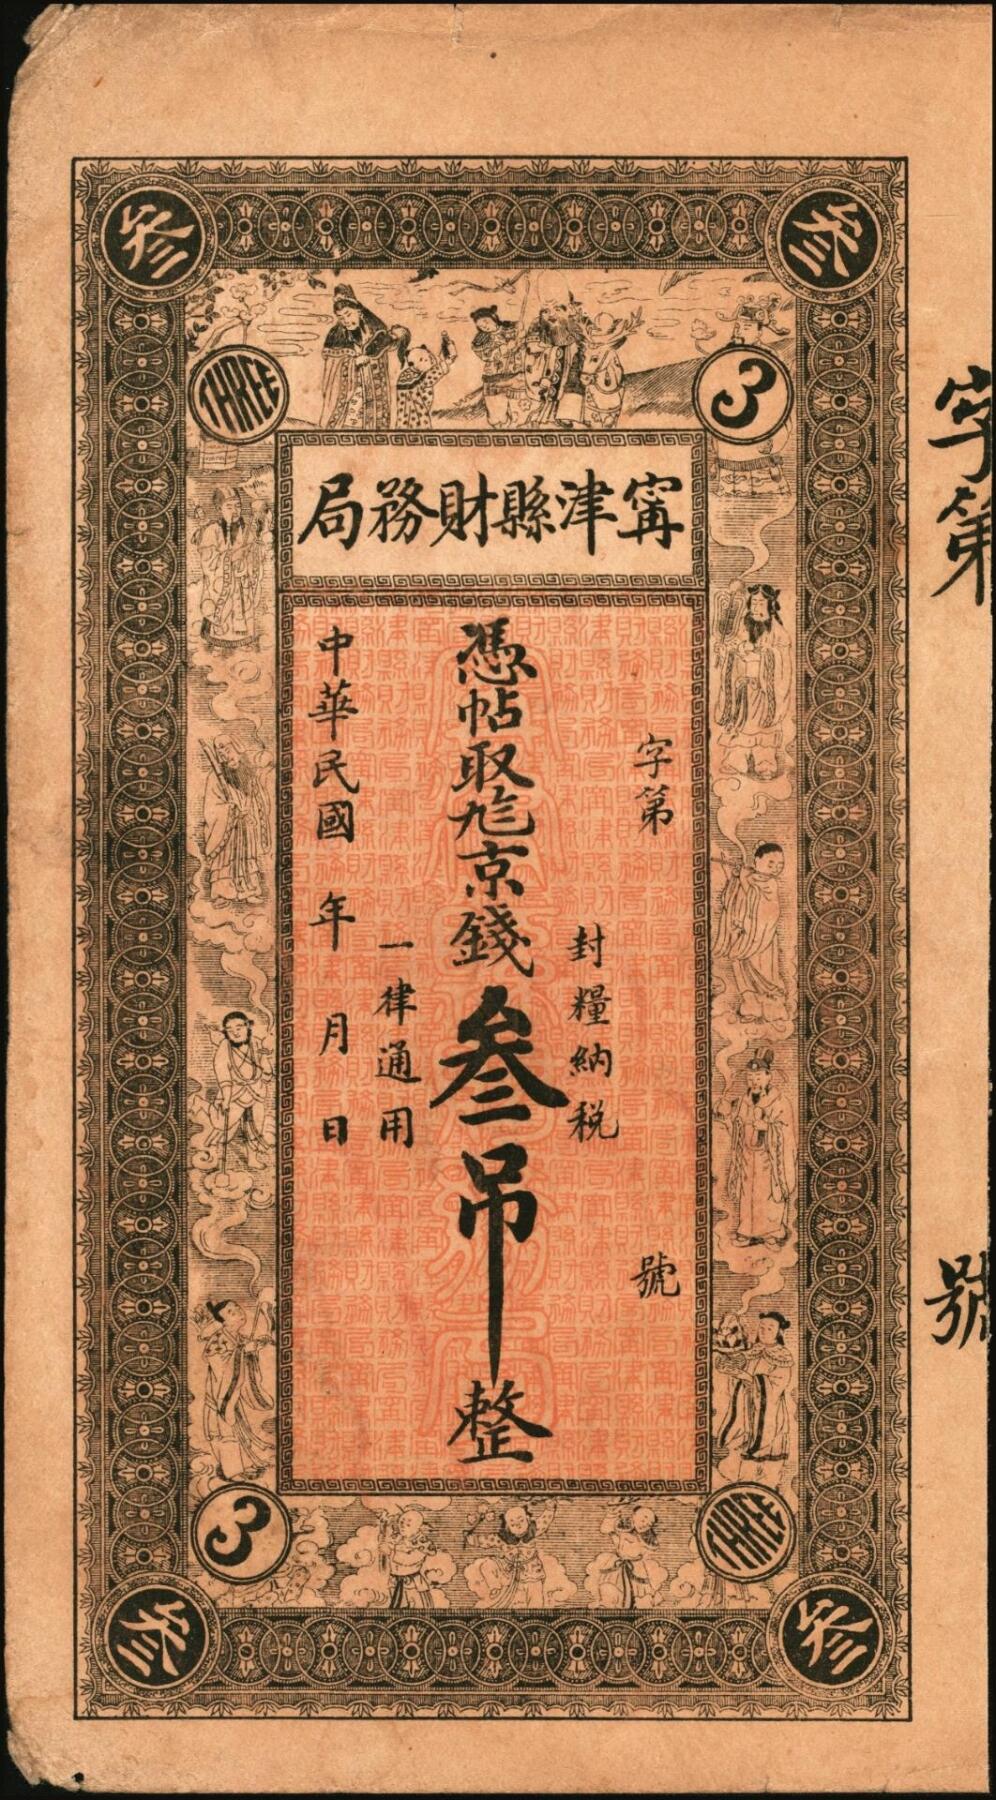 叁
叁
THREE
3
甯津縣財務局
字第 號
封糧納稅
憑帖取九六京錢叁吊整
一律通用
中華民國 年 月 日
字第 號
3
THREE
叁
叁